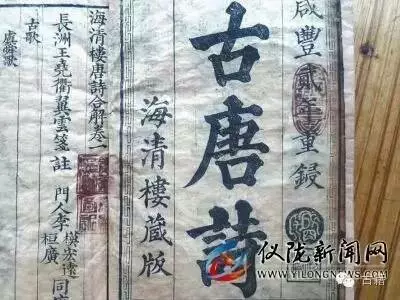 咸豐貳年重鋟
古唐詩
海清樓藏版
海清樓唐詩合解卷一
長洲王堯衢翼雲箋註
門人李
模宏遠
桓廣
同
古歌
虞舜歌
仪陇新闻网
WWW.YILONGNEWS.COM
古籍